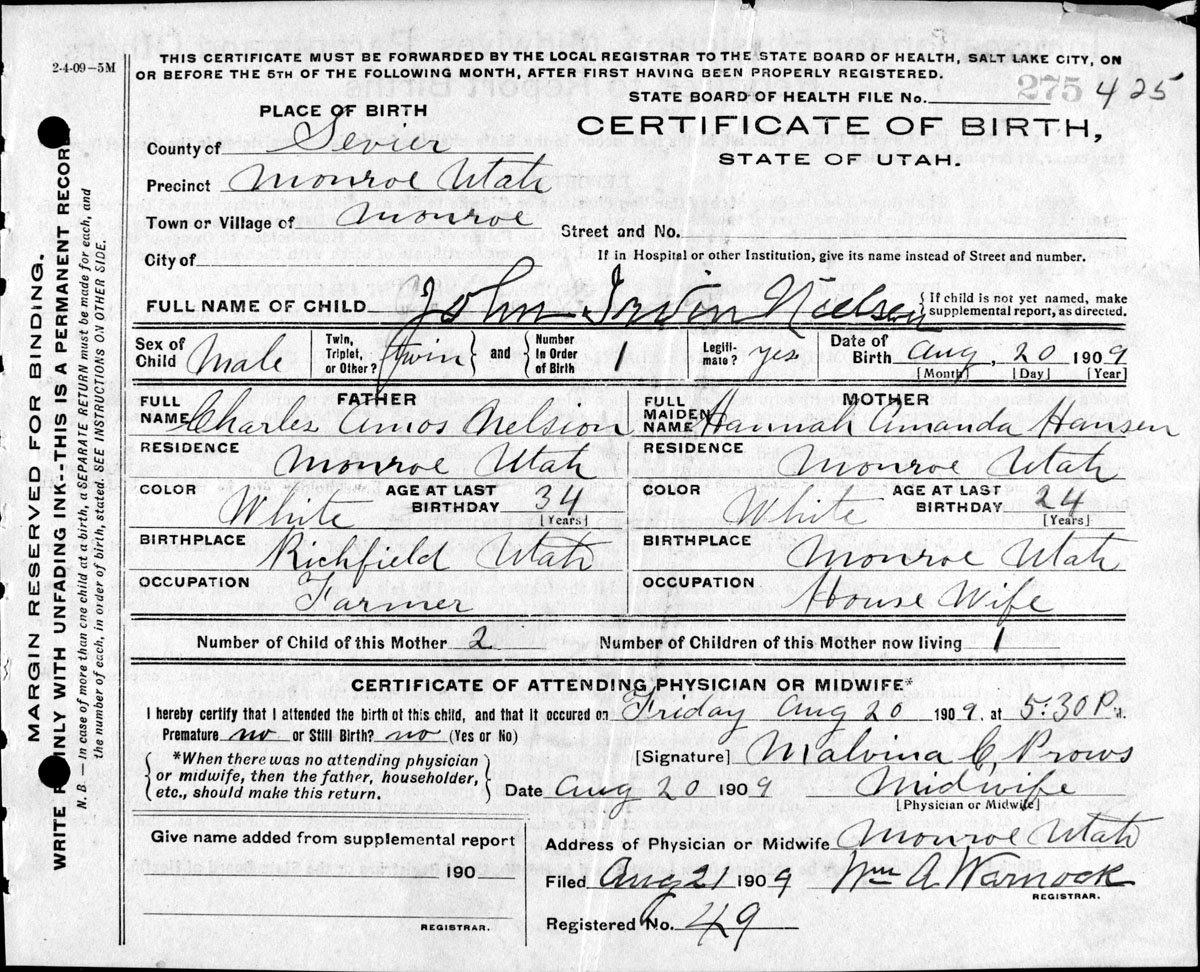 2-4-09—5M
THIS CERTIFICATE MUST BE FORWARDED BY THE LOCAL REGISTRAR TO THE STATE BOARD OF HEALTH, SALT LAKE CITY, ON
OR BEFORE THE 5TH OF THE FOLLOWING MONTH, AFTER FIRST HAVING BEEN PROPERLY REGISTERED.
275 425
STATE BOARD OF HEALTH FILE No.
PLACE OF BIRTH
CERTIFICATE OF BIRTH,
STATE OF UTAH.
County of Sevier
Precinct Monroe Utah
Town or Village of Monroe
Street and No.
City of
If in Hospital or other Institution, give its name instead of Street and number.
FULL NAME OF CHILD John Irvin Nielsen {If child is not yet named, make
supplemental report, as directed.
Sex of Child Male Twin, Triplet, or Other? twin } and { Number In Order of Birth 1 Legiti-mate? yes Date of Birth Aug, 20 1909
[Month] [Day] [Year]
FATHER MOTHER
FULL NAME Charles Amos Nelson FULL MAIDEN NAME Hannah Amanda Hansen
RESIDENCE Monroe Utah RESIDENCE Monroe Utah
COLOR White AGE AT LAST BIRTHDAY 34 [Years] COLOR White AGE AT LAST BIRTHDAY 24 [Years]
BIRTHPLACE Richfield Utah BIRTHPLACE Monroe Utah
OCCUPATION Farmer OCCUPATION House Wife
Number of Child of this Mother 2 Number of Children of this Mother now living 1
CERTIFICATE OF ATTENDING PHYSICIAN OR MIDWIFE*
I hereby certify that I attended the birth of this child, and that it occured on Friday Aug 20 1909, at 5:30 P.M.
Premature no or Still Birth? no (Yes or No)
*When there was no attending physician
or midwife, then the father, householder,
etc., should make this return.
[Signature] Malvina C, Prows
Date Aug 20 1909 Midwife
[Physician or Midwife]
Give name added from supplemental report
190
REGISTRAR.
Address of Physician or Midwife Monroe Utah
Filed Aug 21 1909 Wm A Warnock
REGISTRAR.
Registered No. 49
MARGIN RESERVED FOR BINDING.
WRITE PLAINLY WITH UNFADING INK--THIS IS A PERMANENT RECORD
N. B.—In case of more than one child at a birth, a SEPARATE RETURN must be made for each, and
the number of each, in order of birth, stated. SEE INSTRUCTIONS ON OTHER SIDE.